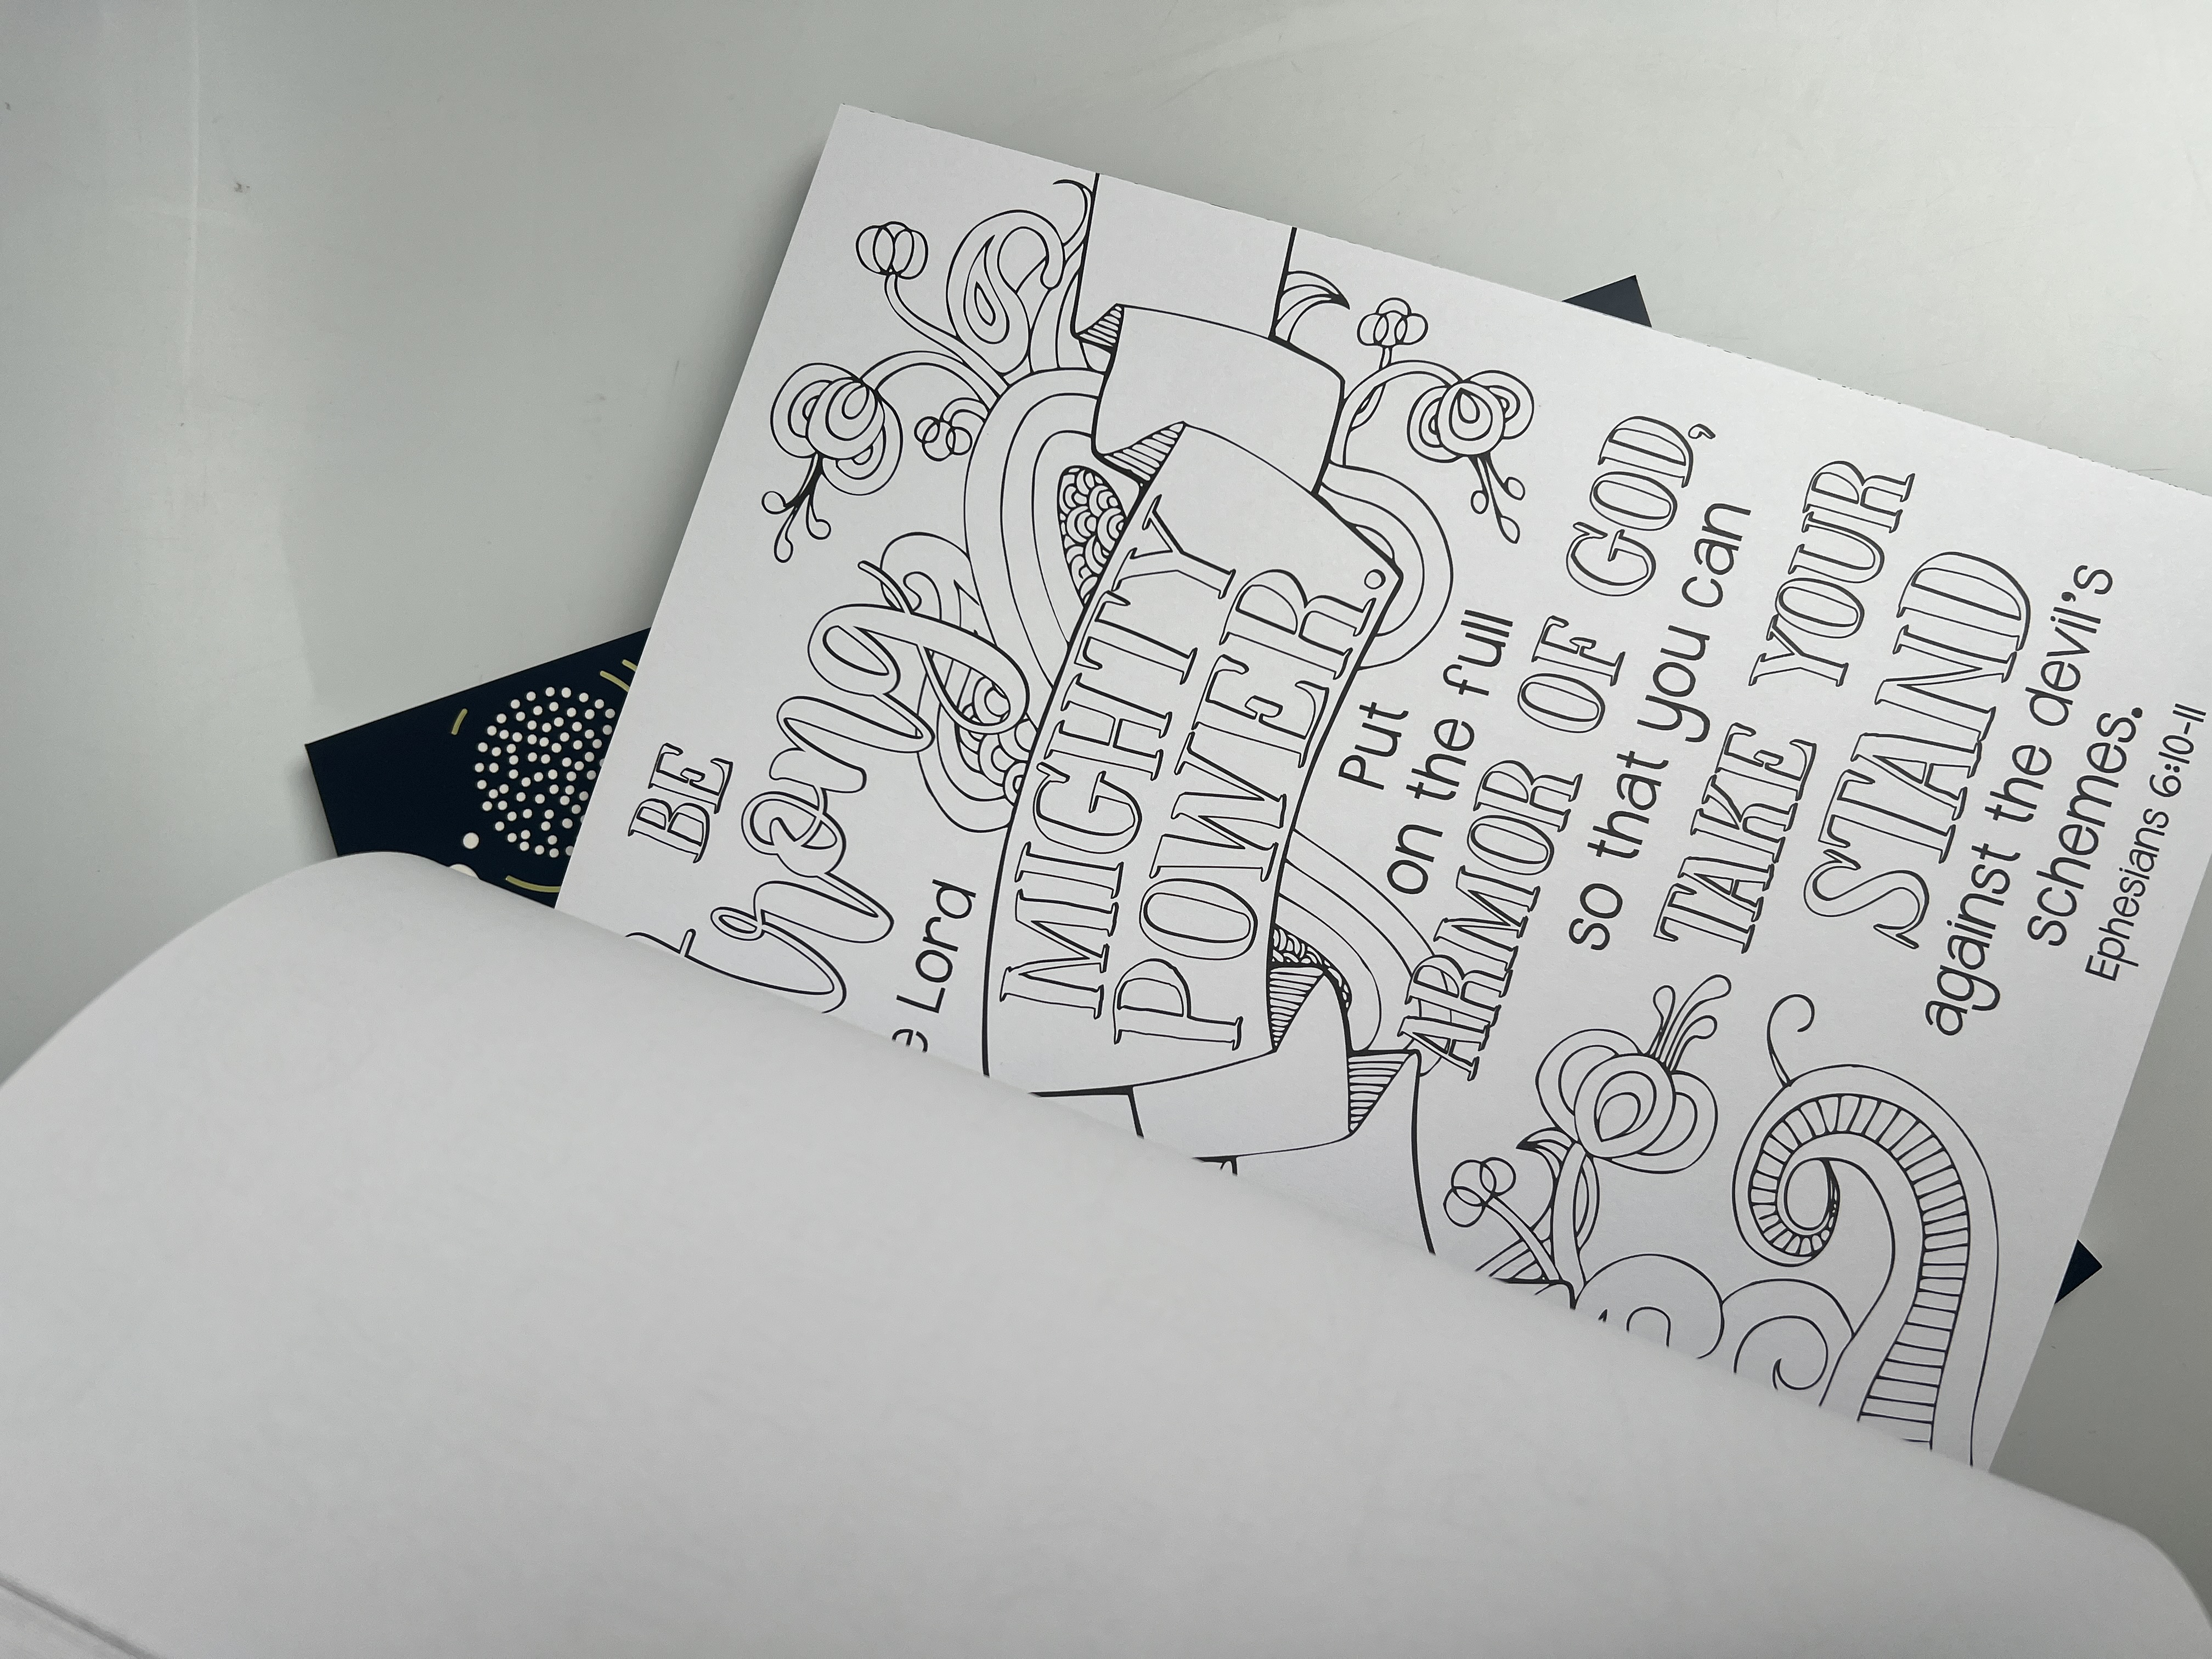 BE
Lord
MIGHTY
POWER.
Put
on the full
ARMOR OF GOD,
so that you can
TAKE YOUR
STAND
against the devil's
schemes.
Ephesians 6:10-11